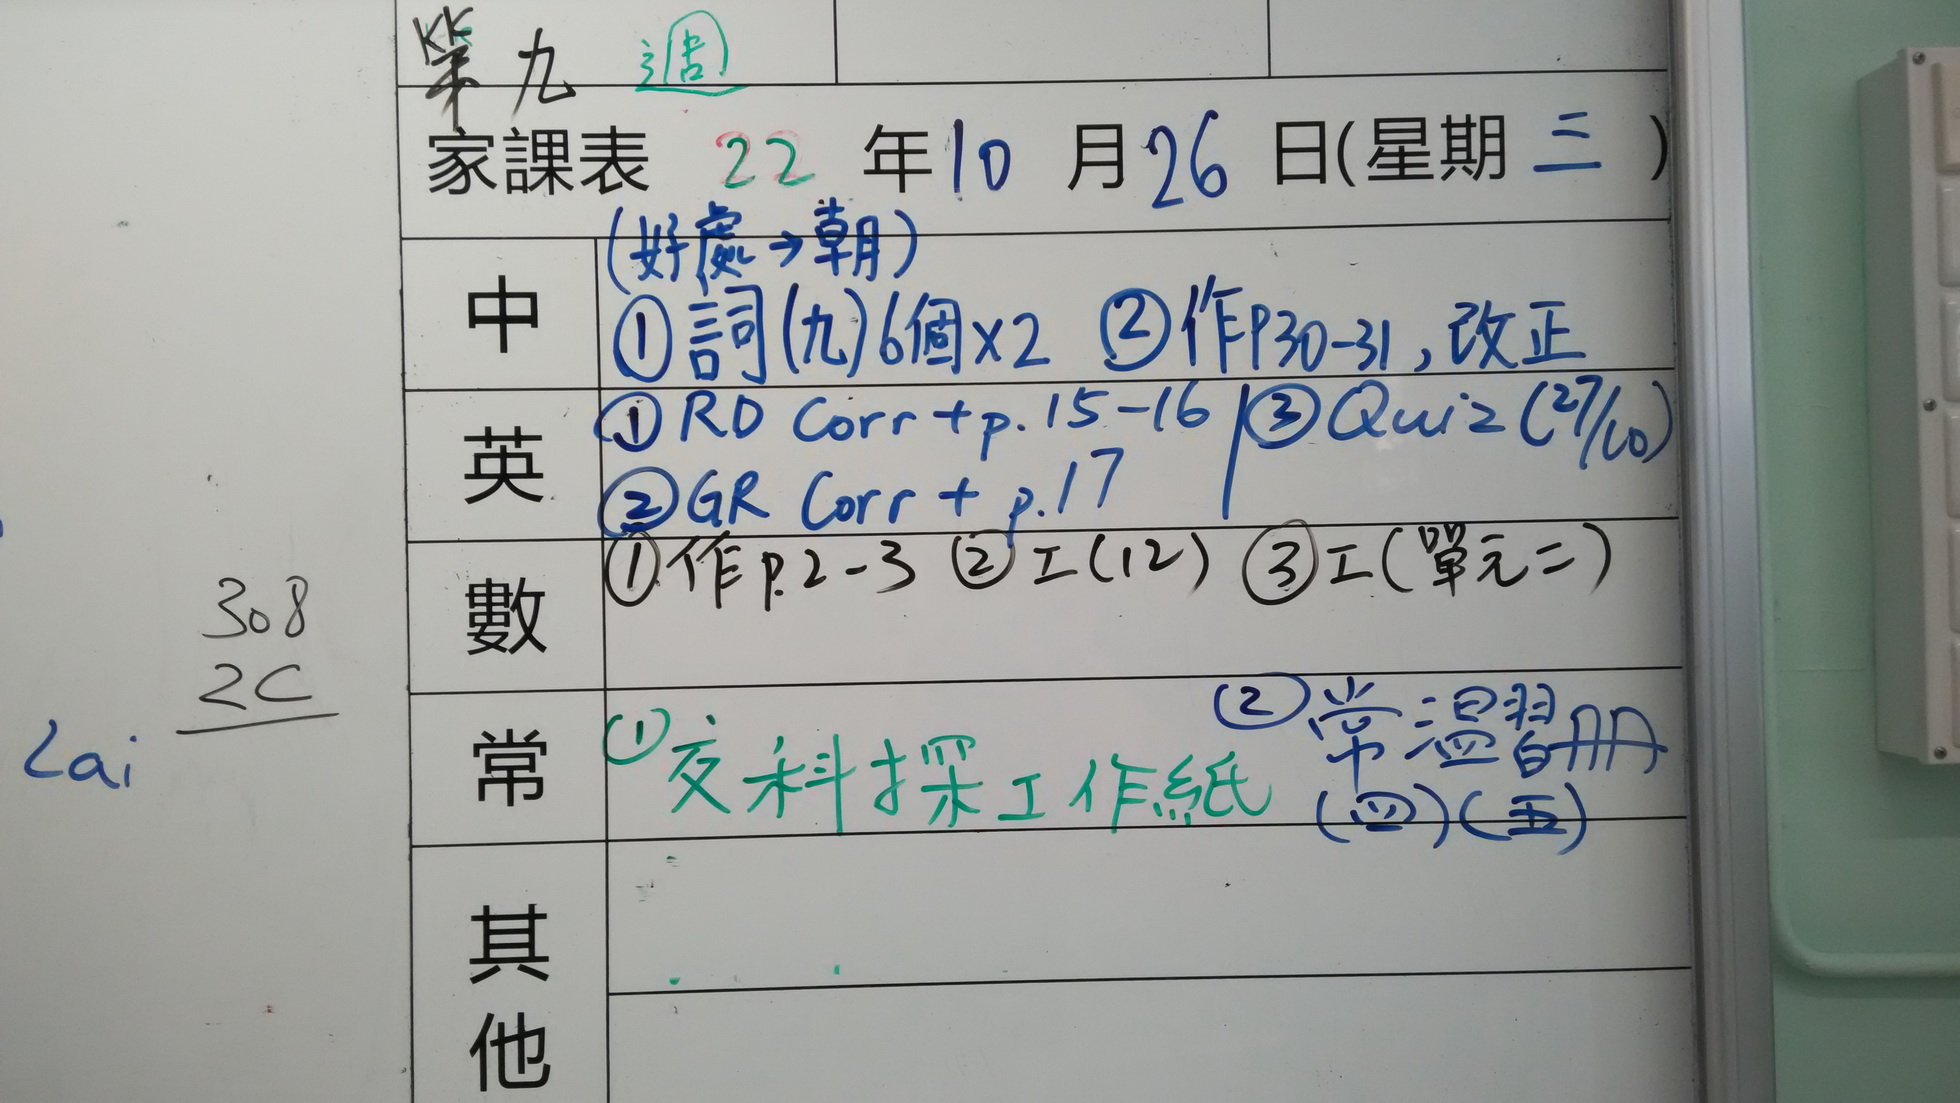 第九週
家課表 22年10月26日(星期三)
(好處→朝)
中 ①詞(九)6個×2 ②作P30-31,改正
英 ①RD Corr + p.15-16 ③Quiz (27/10)
②GR Corr + p.17
數 ①作p.2-3 ②工(12) ③工(單元二)
常 ①交科探工作紙 ②常溫習冊
(四)(五)
其他
308
2C
Lai